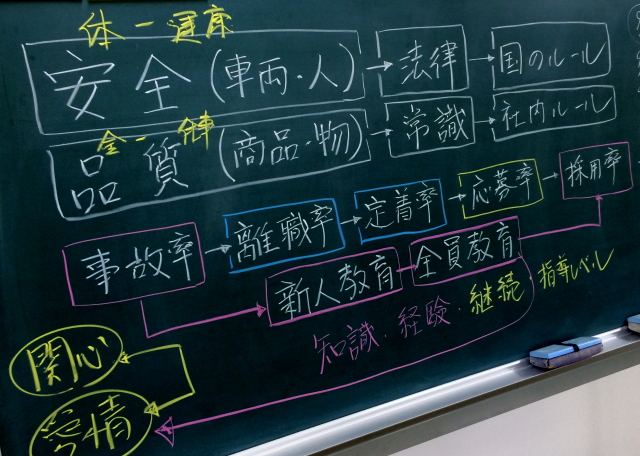 体一運席
安全(車両・人)→法律→国のルール
金一
品質(商品・物)→常識→社内ルール
事故率→離職率→定着率→応募率→採用率
新人教育 全員教育
知識・経験・継続 指導レベル
関心
愛情